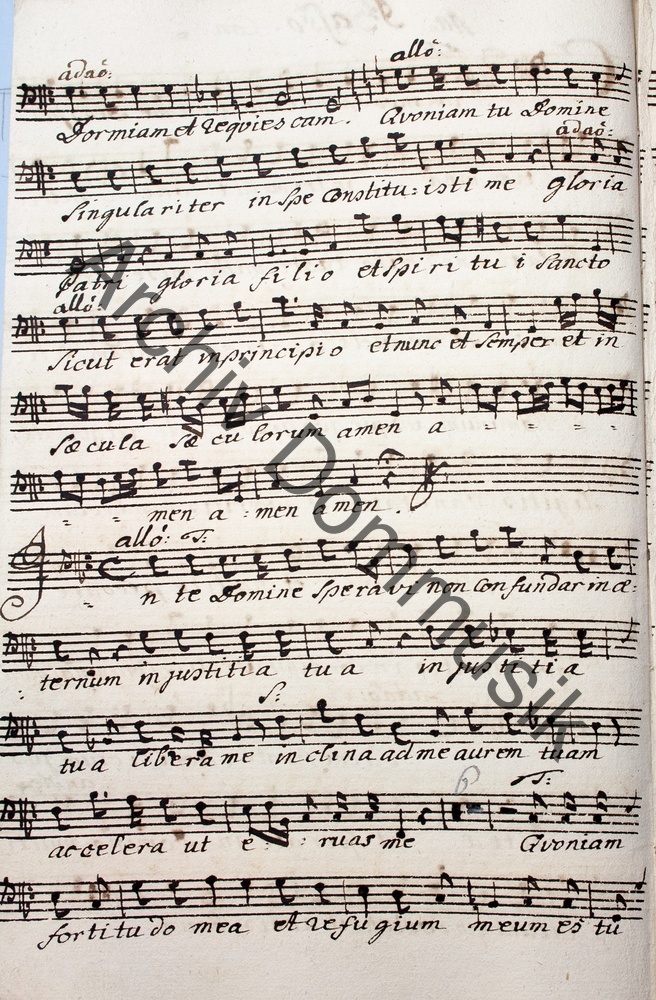 adaõ: allõ:
Dormiam et requies cam. Quoniam tu Domine
adaõ:
singulariter in spe Constitu: isti me gloria
Patri gloria filio et spiri tu i sancto
allõ:
Sicut erat in principio et nunc et semper et in
sæcula sæ cu lorum amen a - - - -
= = men a - men amen.
allõ: T:
n te Domine speravi non Confundar in æ:
ternum in justitia tua in justitia
S:
tua libera me inclina ad me aurem tuam
T:
accelera ut e = : ruas me Quoniam
fortitudo mea et refugium meum es tu
Archiv Dommusik